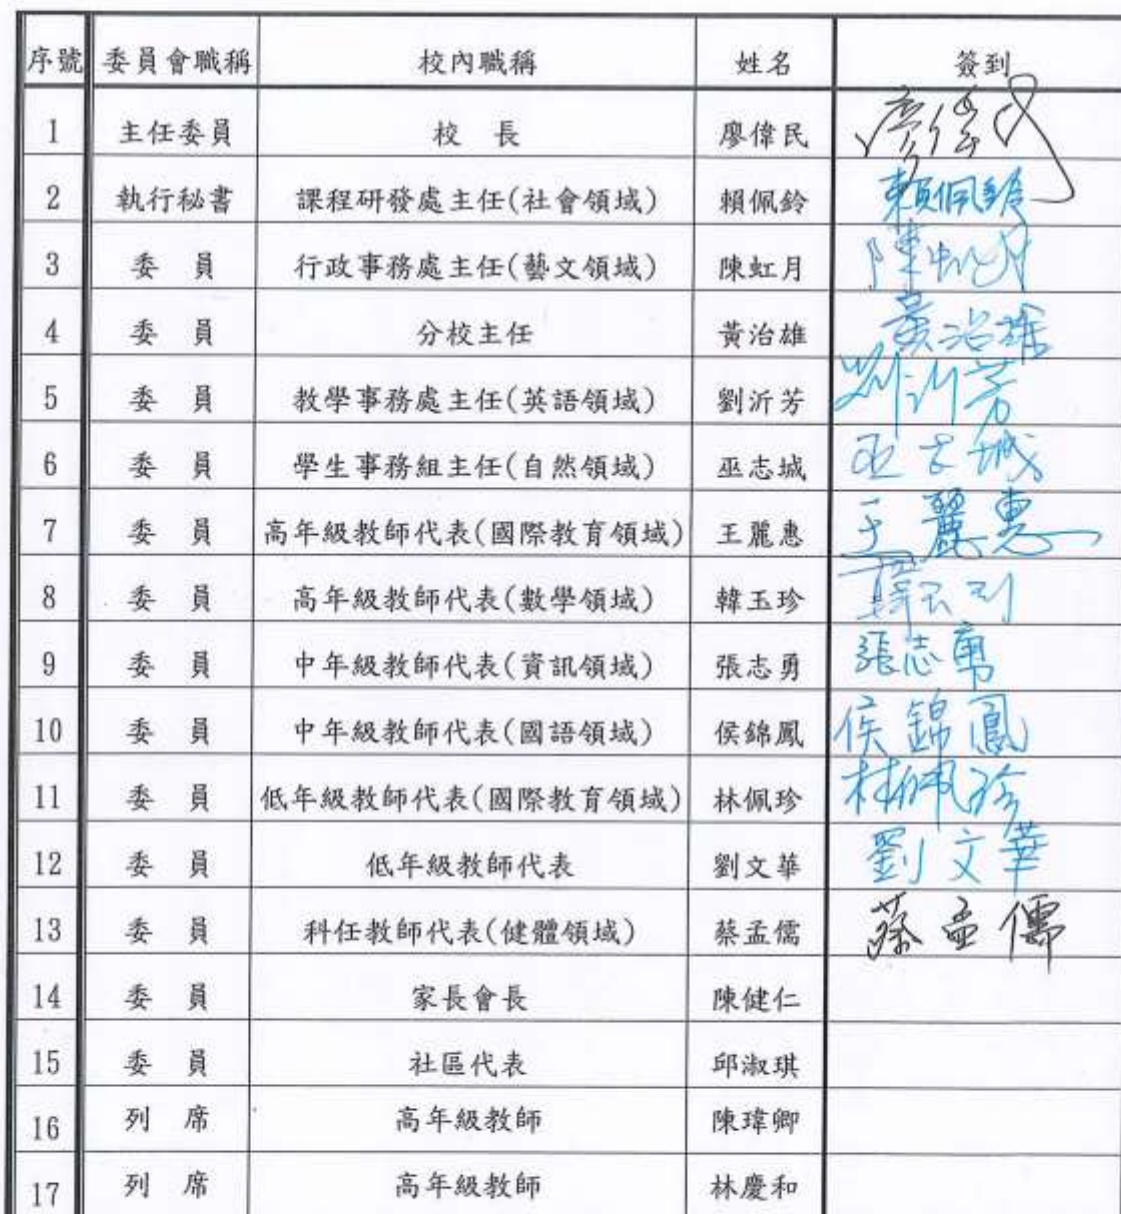 序號 委員會職稱 校內職稱 姓名 簽到
1 主任委員 校 長 廖偉民 廖偉民
2 執行秘書 課程研發處主任(社會領域) 賴佩鈴 賴佩鈴
3 委 員 行政事務處主任(藝文領域) 陳虹月 陳虹月
4 委 員 分校主任 黃治雄 黃治雄
5 委 員 教學事務處主任(英語領域) 劉沂芳 劉沂芳
6 委 員 學生事務組主任(自然領域) 巫志城 巫志城
7 委 員 高年級教師代表(國際教育領域) 王麗惠 王麗惠
8 委 員 高年級教師代表(數學領域) 韓玉珍 韓玉珍
9 委 員 中年級教師代表(資訊領域) 張志勇 張志勇
10 委 員 中年級教師代表(國語領域) 侯錦鳳 侯錦鳳
11 委 員 低年級教師代表(國際教育領域) 林佩珍 林佩珍
12 委 員 低年級教師代表 劉文華 劉文華
13 委 員 科任教師代表(健體領域) 蔡孟儒 蔡孟儒
14 委 員 家長會長 陳健仁
15 委 員 社區代表 邱淑琪
16 列 席 高年級教師 陳瑋卿
17 列 席 高年級教師 林慶和